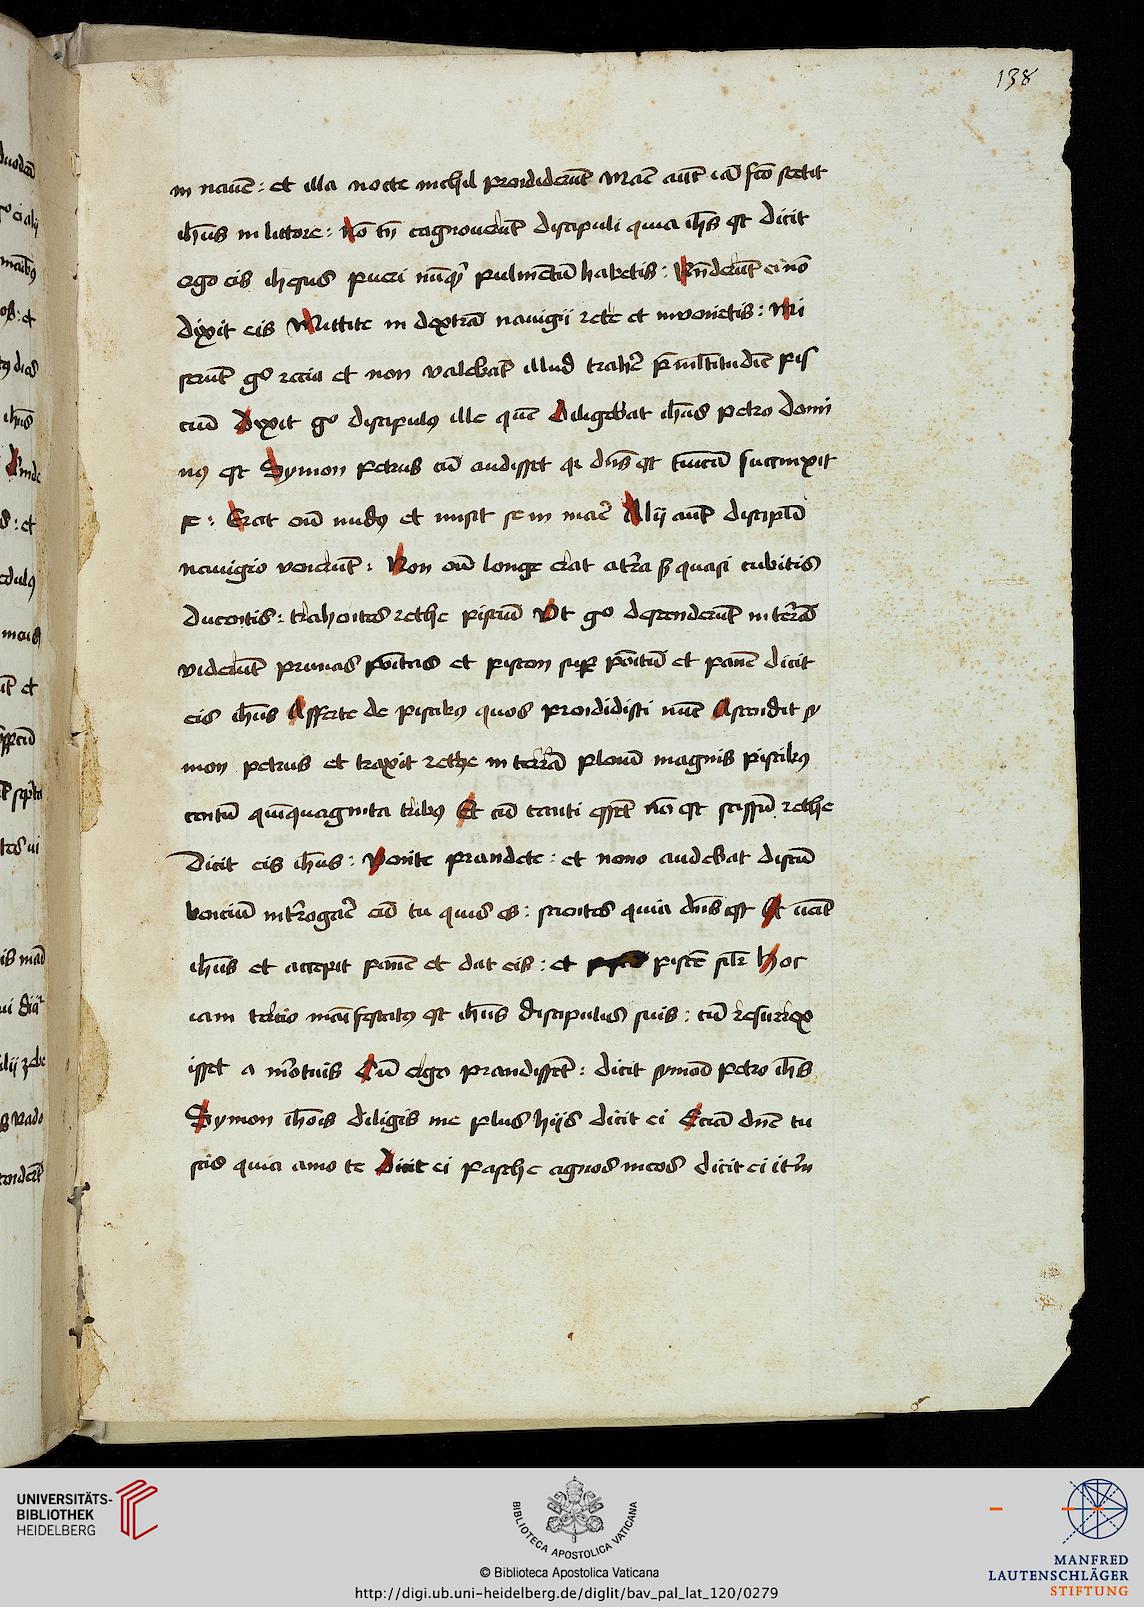 138
in nauē : et illa nocte nichil prendiderūt Mane aūt iā fcō stetit
ih̄us in littore : Nō tn̄ cognouerūt discipuli quia ih̄s est dicit
ergo eis ihesus pueri nūqͥ pulmētū habetis : Rn̄derūt ei nō
dixit eis Mittite in dextrā nauigii rete et inuenietis : Mi
serūt gͦ recia et non valebāt illud trahe᷑ p̄ ml̄titudīe pis
ciū Dixit gͦ discipulꝯ ille quē diligebat ih̄us petro domi
nꝯ est Symon petrus cū audisset qꝛ dn̄s est tunicā succinxit
se : Erat em̄ nudꝯ et misit se in mare᷑ Alij aūt discipl̄i
nauigio venerūt : Non em̄ longe erat a tr̄ra sꝫ quasi cubitis
Ducentis : trahentes rethe pisciū Vt gͦ descenderūt in terrā
viderūt prunas poītas et piscem sup̄ poītū et panē dicit
eis ih̄us Afferte de piscibꝯ quos prendidisti nūc Ascendit sy
mon petrus et traxit rethe in terrā plenū magnis piscibꝯ
centū quīquaginta tribꝯ Et cū tanti essēt nō est scissū rethe
Dicit eis ih̄us : Venite prandete : et nemo audebat discū
benciū int̄rogare᷑ eū tu quis es : scientes quia dn̄s est Et uēit
ih̄us et accepit panē et dat eis : et piscē silr̄ Hoc
iam tercio manīfestatꝯ est ih̄us discipulus suis : cū resurrex
isset a mortuis Cū ergo prandissēt : dicit symoī petro ih̄s
Symon ioh̄is diligis me plus hijs dicit ei Eciā dn̄e tu
scis quia amo te Dicit ei pasche agnos meos dicit ei itr̄m
UNIVERSITÄTS-
BIBLIOTHEK
HEIDELBERG
BIBLIOTECA APOSTOLICA VATICANA
© Biblioteca Apostolica Vaticana
http://digi.ub.uni-heidelberg.de/diglit/bav_pal_lat_120/0279
MANFRED
LAUTENSCHLÄGER
STIFTUNG